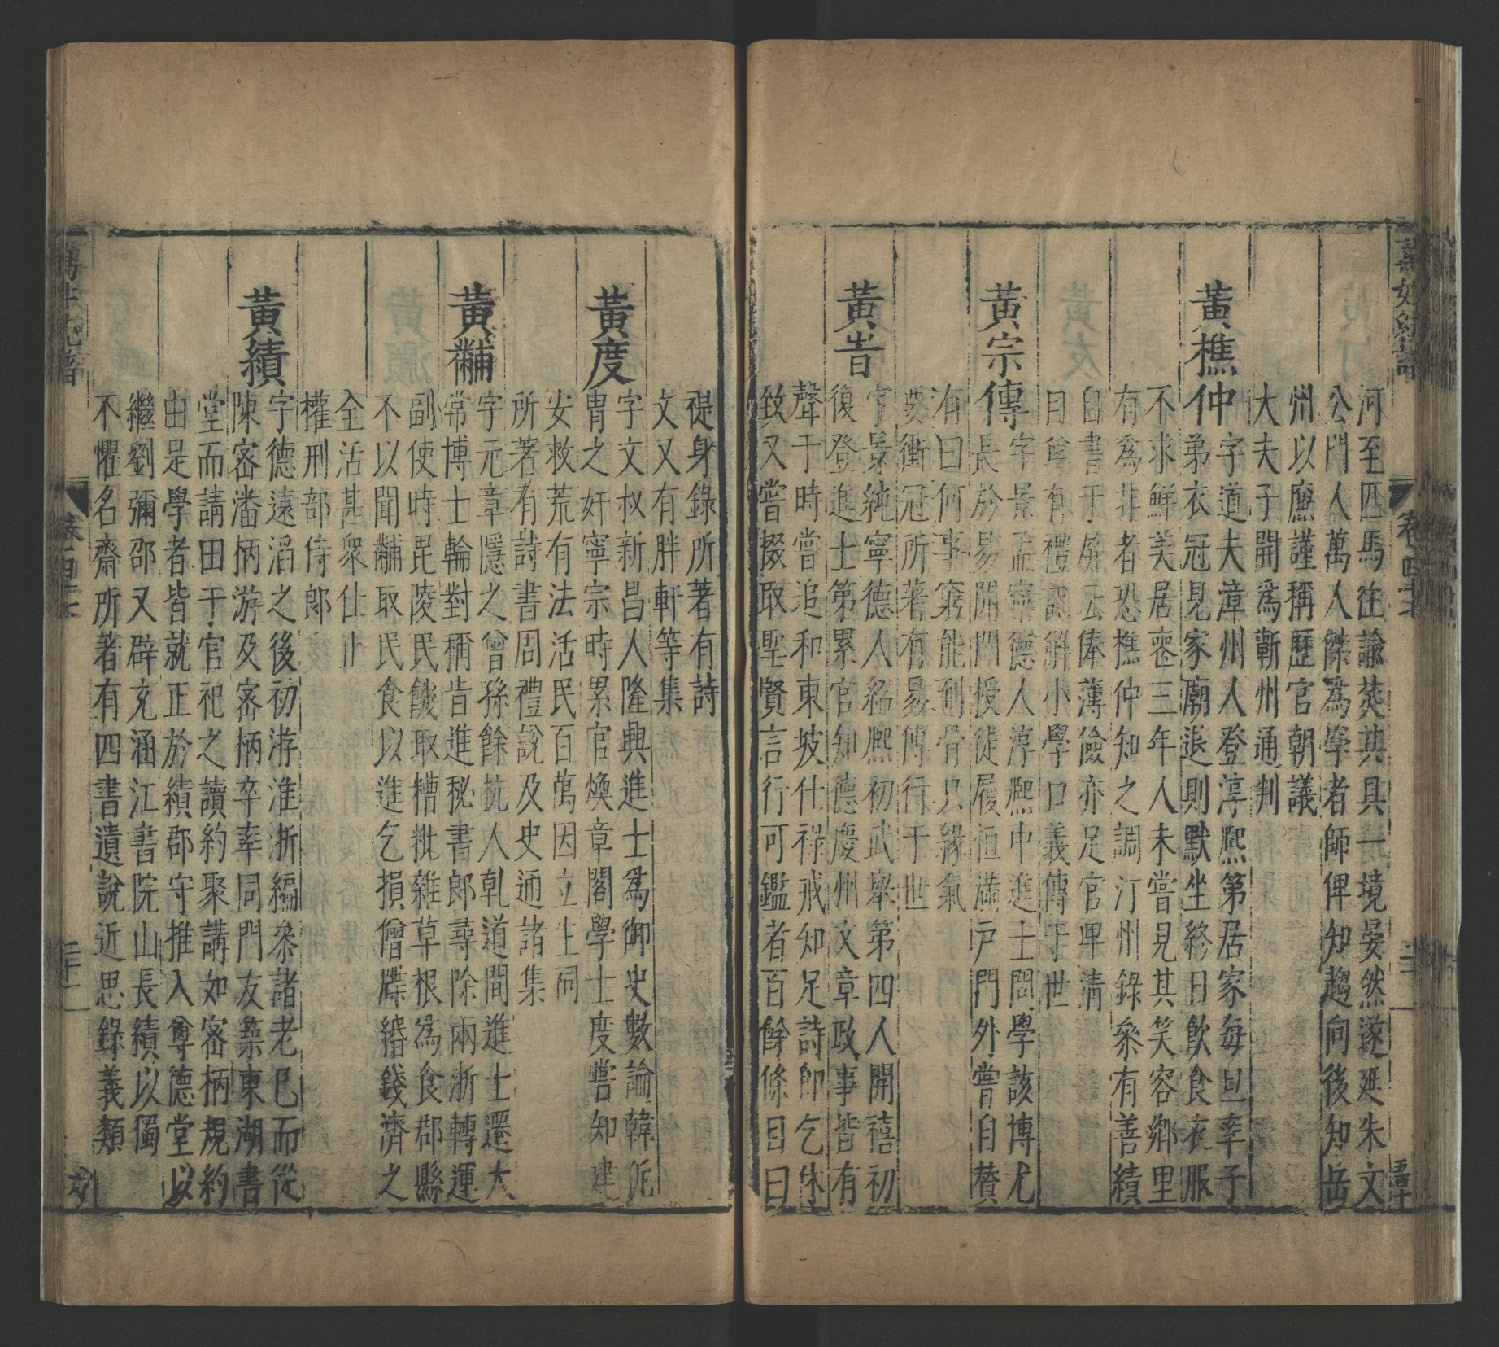 萬姓統譜
卷一百四十七
河至匹馬往諭其具一境晏然遂延朱文
公門人萬人傑為學者師俾知趨向後知岳
州以廉謹稱歷官朝議
大夫子開為蘄州通判
黃樵仲
字道夫漳州人登淳熙第居家每旦率子
弟衣冠見家廟退則默坐終日飲食衣服
不求鮮美居喪三年人未嘗見其笑容鄉里
有為非者恐樵仲知之調汀州錄參有善績
自書于屏云俸薄儉亦足官卑清
自尊有禮記解小學口義傳于世
黃宗傳
字景孟寧德人淳熙中進士問學該博尤
長於易開門授徒履恒滿戶門外嘗自贊
有曰何事窮能到骨只緣氣
要衝冠所著有易傳行于世
黃岩
字景純寧德人紹熙初武舉第四人開禧初
復登進士第累官知德慶州文章政事皆有
聲于時嘗追和東坡仕祿戒知足詩即乞休
致又嘗掇取聖賢言行可鑑者百餘條目曰
禔身錄所著有詩
文又有胖軒等集
黃度
字文叔新昌人隆興進士為御史數論韓侂
胄之奸寧宗時累官煥章閣學士度嘗知建
安救荒有法活民百萬因立生祠
所著有詩書周禮說及史通諸集
黃黼
字元章隱之曾孫餘杭人乾道間進士遷太
常博士輪對稱旨進秘書郎尋除兩浙轉運
副使時毘陵民饑取糟粃雜草根為食郡縣
不以聞黼取民食以進乞損僧牒緡錢濟之
全活甚眾仕止
權刑部侍郎
黃績
字德遠滔之後初游淮浙編參諸老已而從
陳宓潘柄游及宓柄卒率同門友築東湖書
堂而請田于官祀之讀約聚講如宓柄規約
由是學者皆就正於績郡守推入尊德堂以
繼劉彌邵又辟充涵江書院山長績以獨
不懼名齋所著有四書遺說近思錄義類